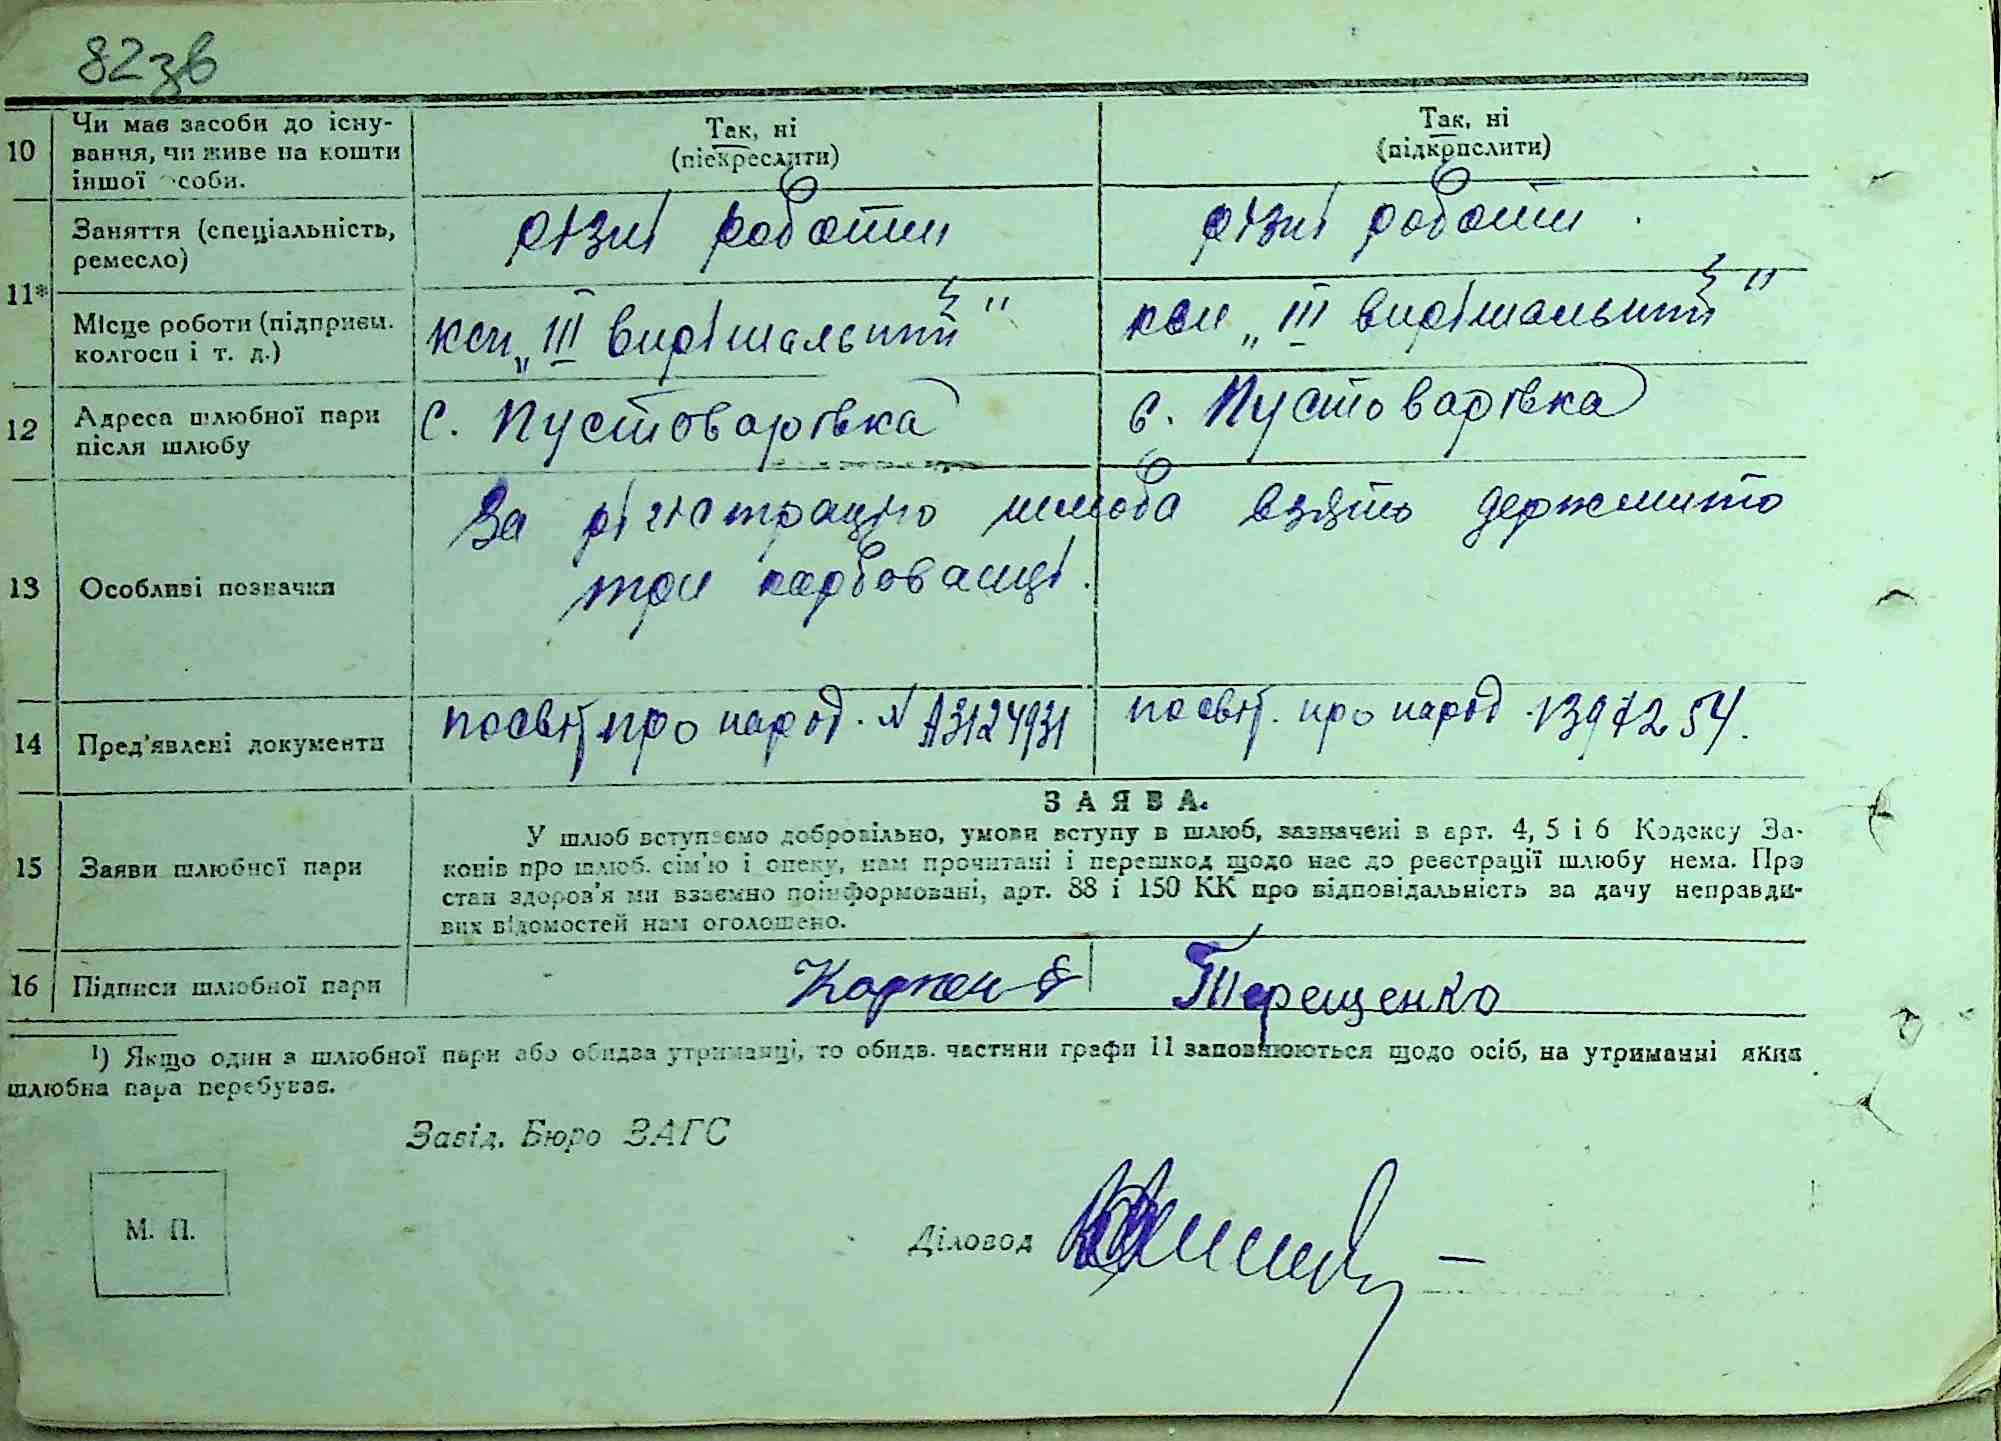 82зв
10 Чи має засоби до існу-
вання, чи живе на кошти
іншої особи.
Так, ні
(піекреслити)
Так, ні
(підкрпслити)
11* Заняття (спеціальність,
ремесло)
різні роботи
різні роботи
Місце роботи (підприєм.
колгосп і т. д.)
ксп „III вирішальний"
ксп „III вирішальний"
12 Адреса шлюбної пари
після шлюбу
с. Пустоварівка
с. Пустоварівка
13 Особливі позначки
За рігістрацію шлюба взято держмито
три карбованці.
14 Пред'явлені документи
посвід. про народ. N
посвід. про народ.
З А Я В А.
15 Заяви шлюбної пари
У шлюб вступаємо добровільно, умови вступу в шлюб, зазначені в арт. 4, 5 і 6 Кодексу За-
конів про шлюб. сім'ю і опеку, нам прочитані і перешкод щодо нас до реєстрації шлюбу нема. Про
стан здоров'я ми взаємно поінформовані, арт. 88 і 150 КК про відповідальність за дачу неправди-
вих відомостей нам оголошено.
16 Підписи шлюбної пари
Терещенко
¹) Якщо один з шлюбної пари або обидва утриманці, то обидв. частини графи 11 заповнюються щодо осіб, на утриманні яких
шлюбна пара перебуває.
Завід. Бюро ЗАГС
М. П.
Діловод